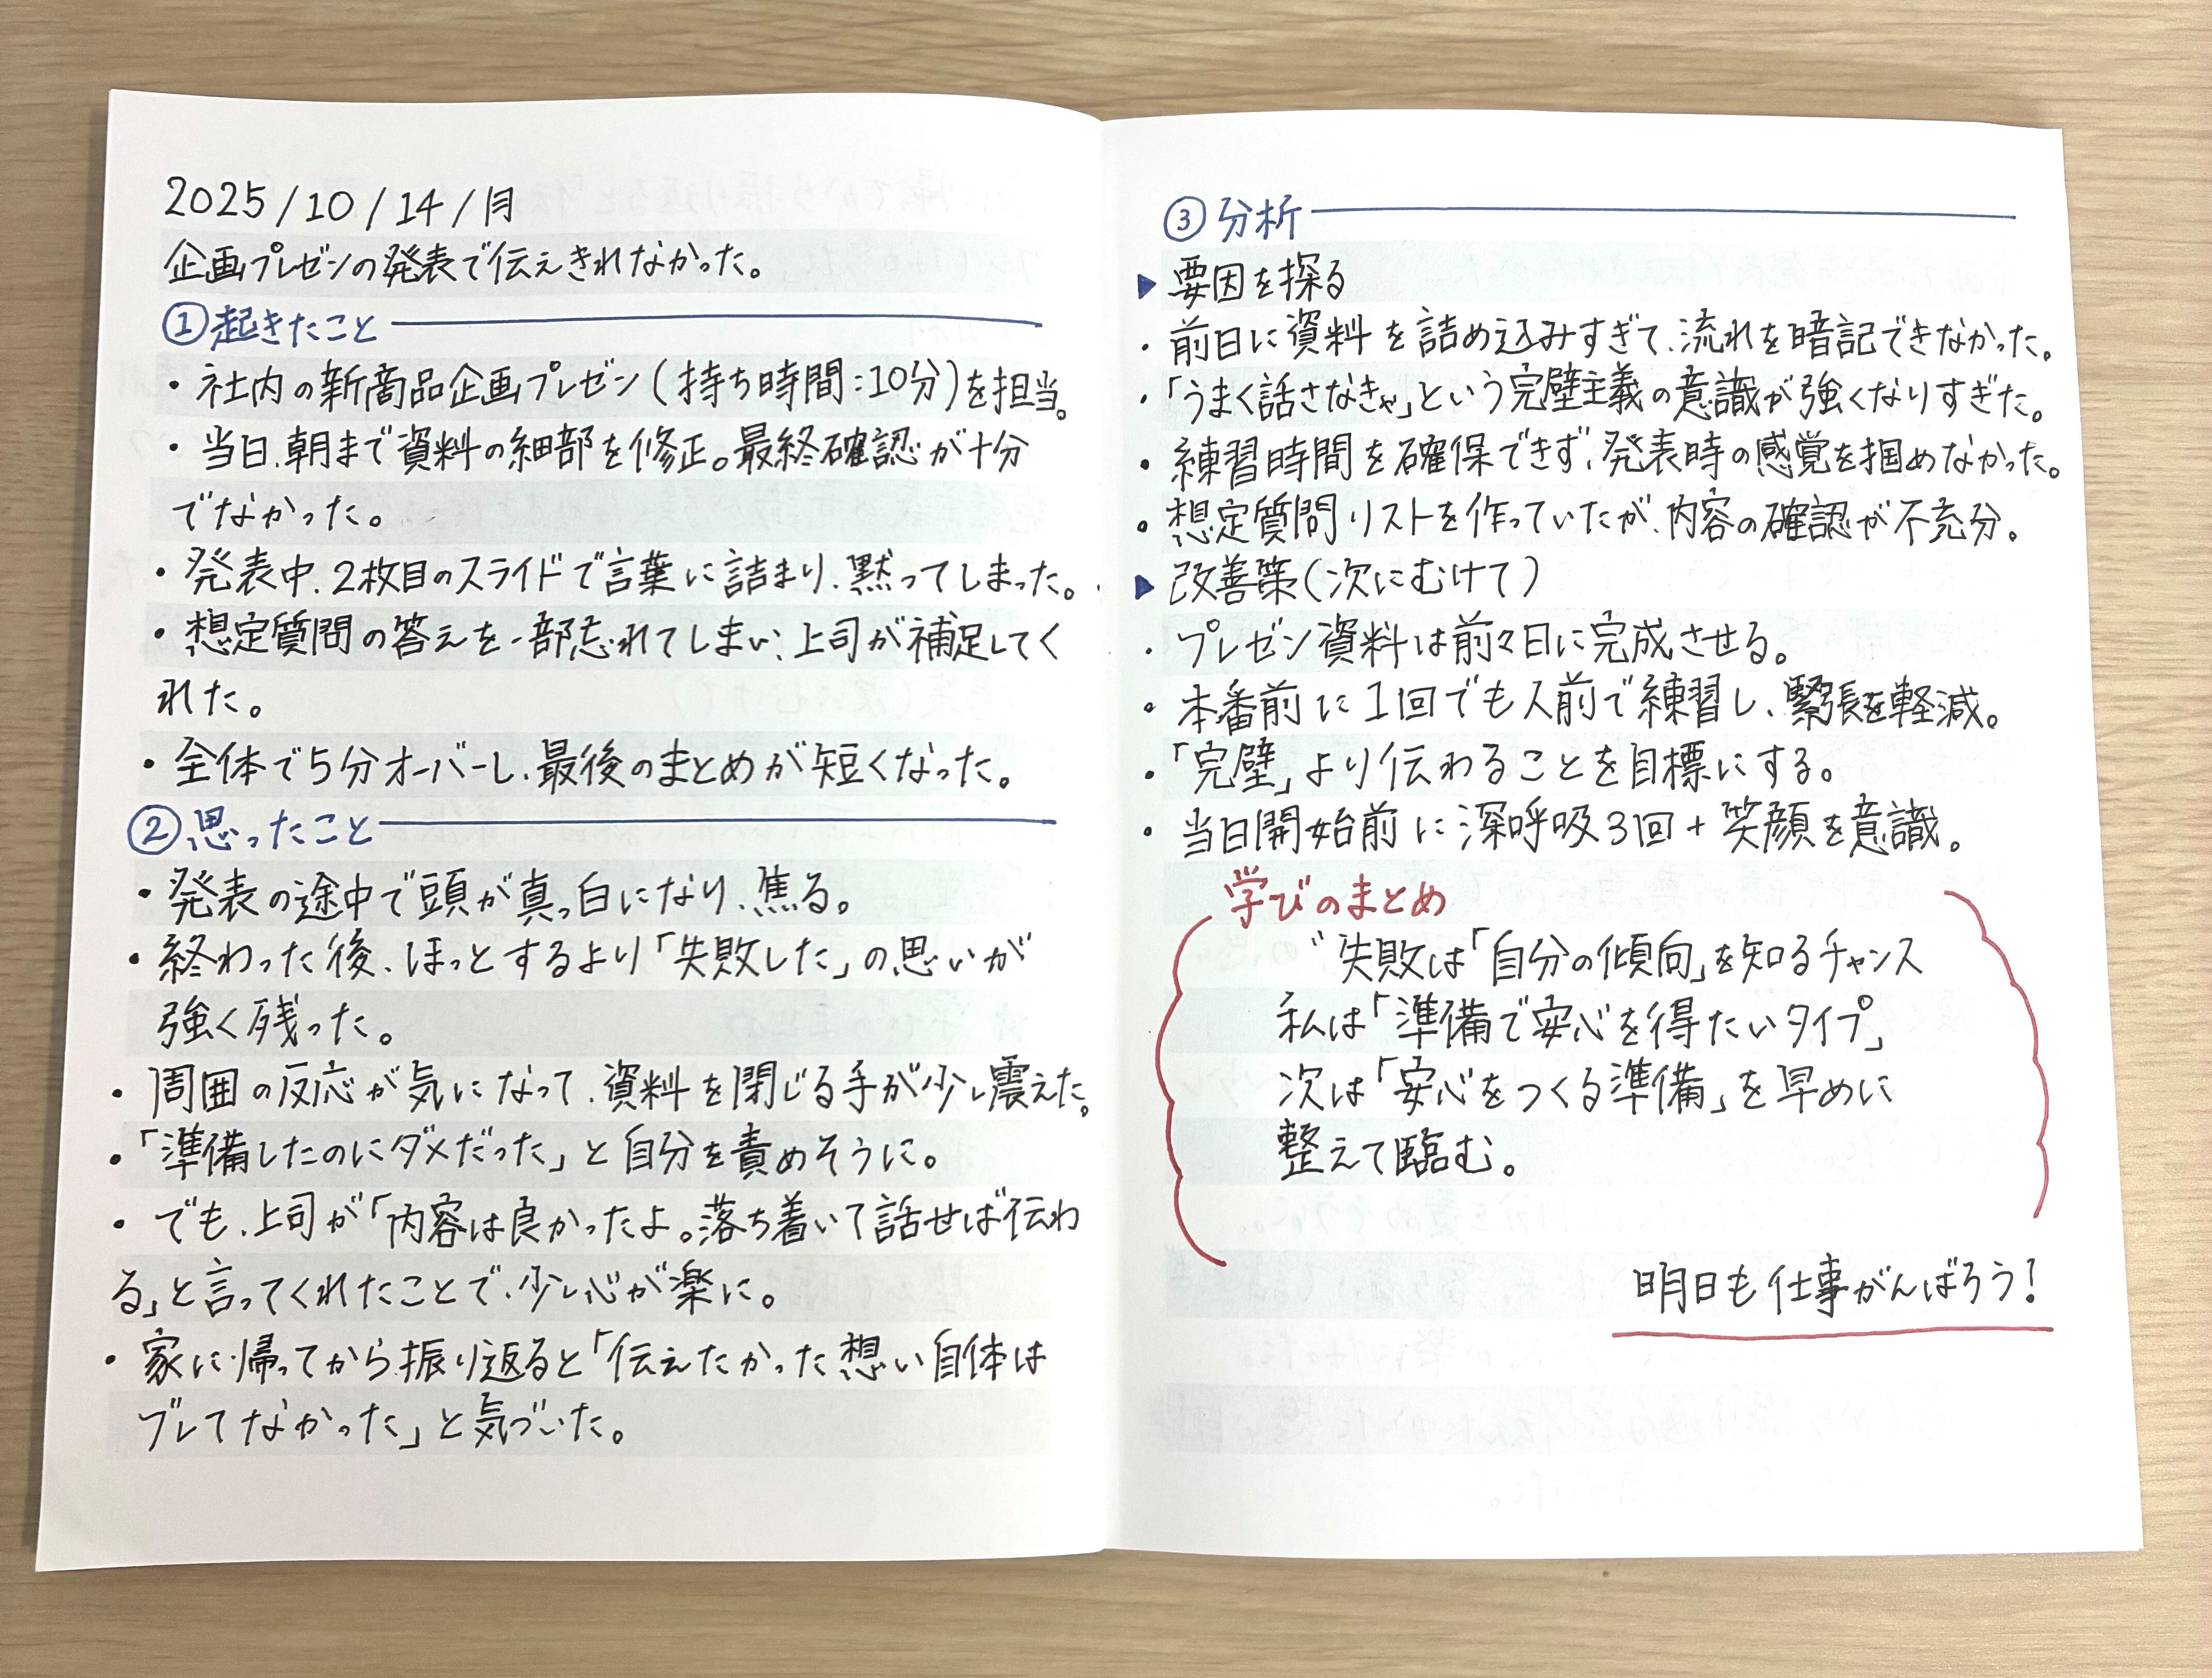 2025/10/14/月
企画プレゼンの発表で伝えきれなかった。
①起きたこと
・社内の新商品企画プレゼン(持ち時間:10分)を担当。
・当日、朝まで資料の細部を修正。最終確認が十分
でなかった。
・発表中、2枚目のスライドで言葉に詰まり、黙ってしまった。
・想定質問の答えを一部忘れてしまい、上司が補足してく
れた。
・全体で5分オーバーし、最後のまとめが短くなった。
②思ったこと
・発表の途中で頭が真っ白になり、焦る。
・終わった後、ほっとするより「失敗した」の思いが
強く残った。
・周囲の反応が気になって、資料を閉じる手が少し震えた。
・「準備したのにダメだった」と自分を責めそうに。
・でも、上司が「内容は良かったよ。落ち着いて話せば伝わ
る」と言ってくれたことで、少し心が楽に。
・家に帰ってから振り返ると「伝えたかった想い自体は
ブレてなかった」と気づいた。
③分析
▶要因を探る
・前日に資料を詰め込みすぎて、流れを暗記できなかった。
・「うまく話さなきゃ」という完璧主義の意識が強くなりすぎた。
・練習時間を確保できず、発表時の感覚を掴めなかった。
・想定質問リストを作っていたが、内容の確認が不充分。
▶改善策(次にむけて)
・プレゼン資料は前々日に完成させる。
・本番前に1回でも人前で練習し、緊張を軽減。
・「完璧」より伝わることを目標にする。
・当日開始前に深呼吸3回+笑顔を意識。
学びのまとめ
"失敗は「自分の傾向」を知るチャンス
私は「準備で安心を得たいタイプ」
次は「安心をつくる準備」を早めに
整えて臨む。
明日も仕事がんばろう!